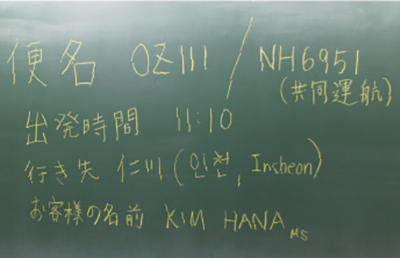 便名 OZ111 / NH6951
(共同運航)
出発時間 11:10
行き先 仁川(인천, Incheon)
お客様の名前 KIM HANA MS